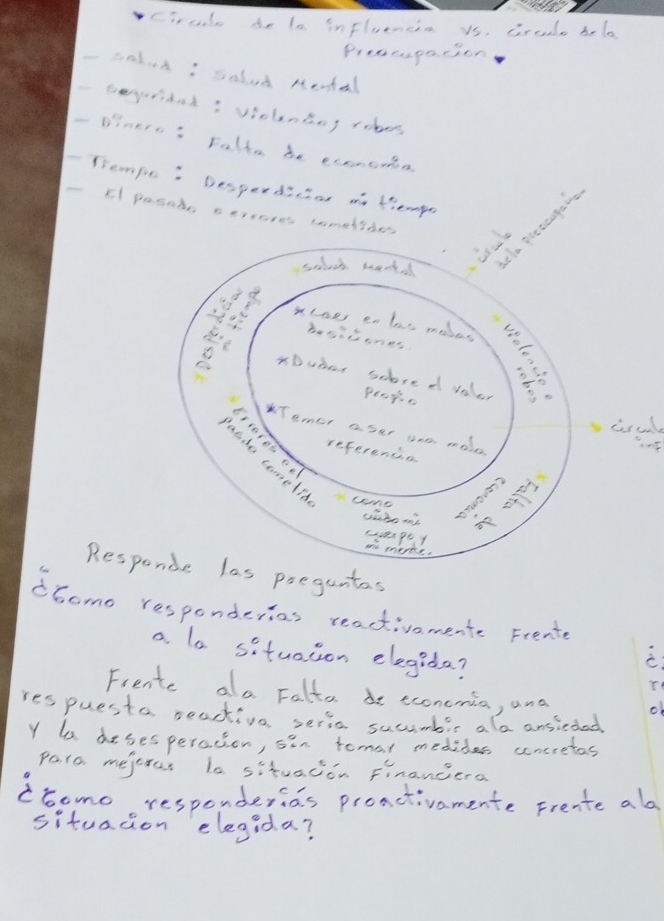 Circulo de la influencia vs. circulo de la
Preocupación
- Salud : Salud Mental
- Seguridad : Violencia y robos
- Dinero : Falta de economía
- Tiempo : Desperdiciar mi tiempo
- El pasado o errores cometidos
circulo
de la preocupación
Salud mental
Desperdiciar
mi tiempo
Violencia e
robos
* Caer en las malas
desiciones.
* Dudar sobre el valor
propio
* Temor a ser una mala
referencia
circulo
inf
Errores del
pasado cometido
como
cuido mi
cuerpo y
mi mente.
Falta de
economia
Responde las preguntas
¿Como responderias reactivamente Frente
a la situación elegida?
Frente ala Falta de economía, una
respuesta reactiva seria sucumbir ala ansiedad
y la desesperación, sin tomar medidas concretas
para mejorar la situación Financiera
¿Como responderías proactivamente Frente ala
situacion elegida?